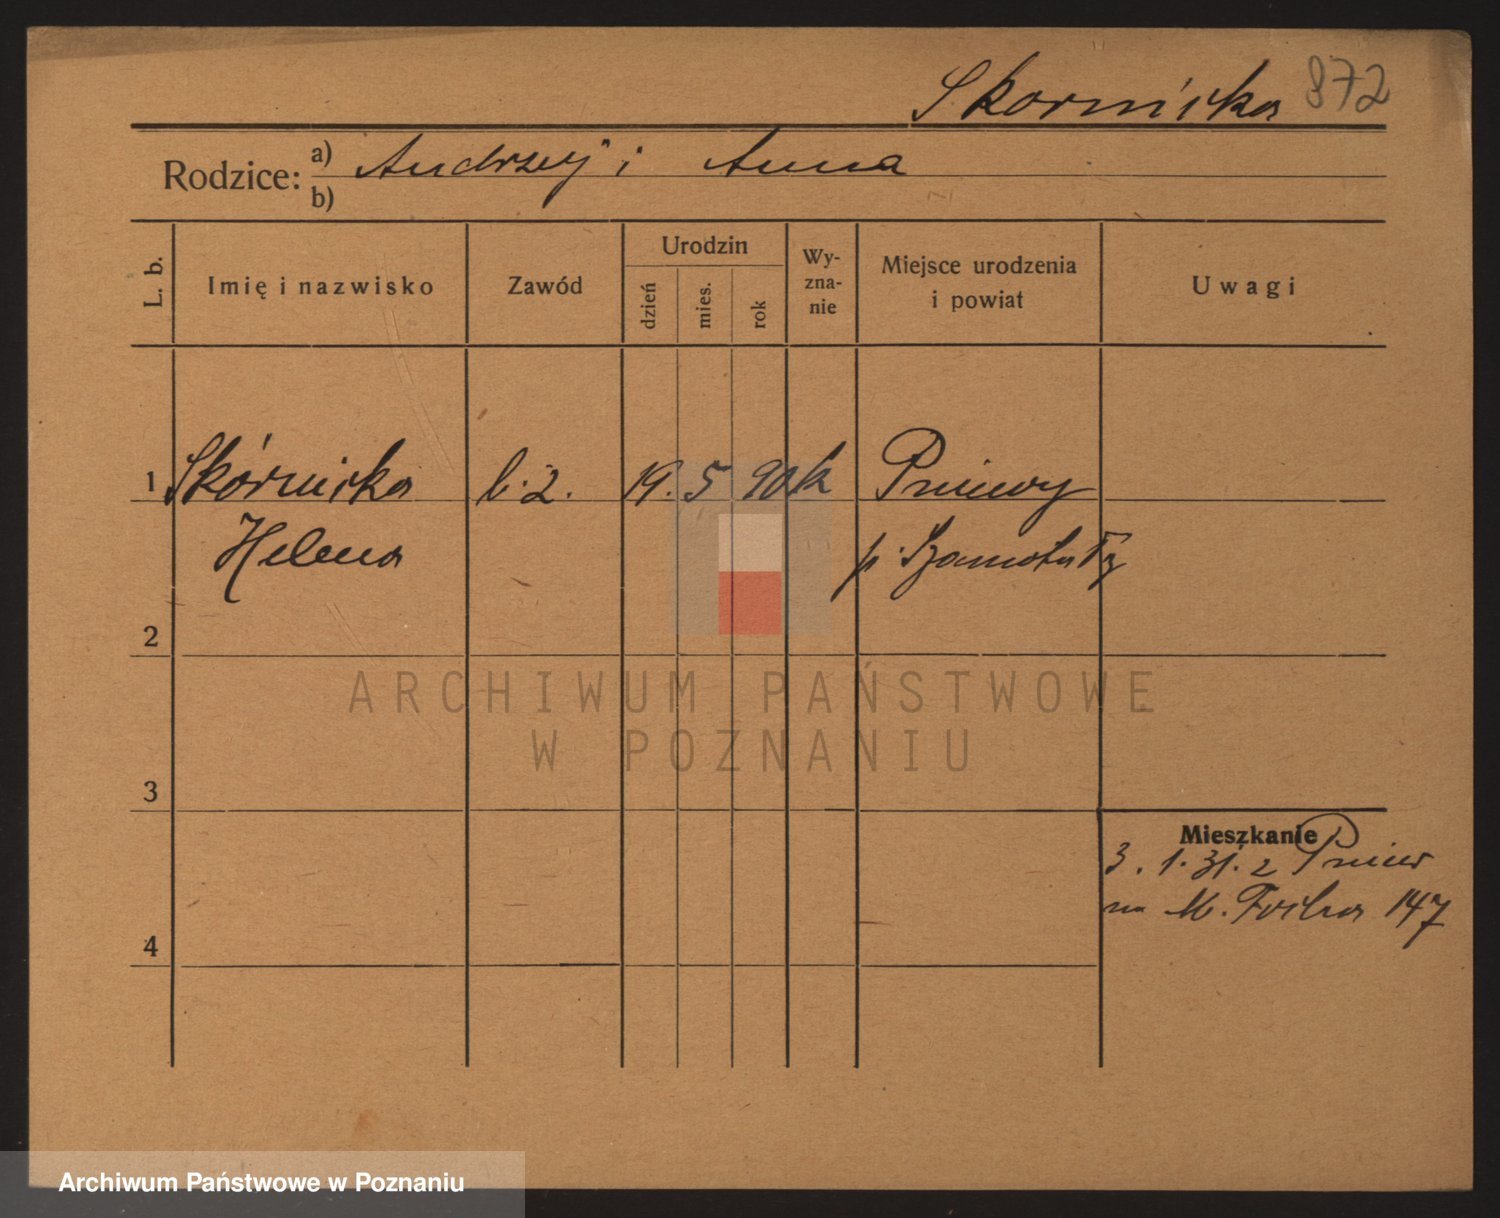 Skórnicka 872
Rodzice: a) Andrzej i Anna
b)
L. b.
Imię i nazwisko
Zawód
Urodzin
dzień
mies.
rok
Wy-
zna-
nie
Miejsce urodzenia
i powiat
Uwagi
1 Skórnicka b. z. 19. 5 90 k Pniewy
Helena p. Szamotuły
2
ARCHIWUM PAŃSTWOWE
W POZNANIU
3
Mieszkanie
3. 1. 31. z Pniew
na M. Focha 147
4
Archiwum Państwowe w Poznaniu